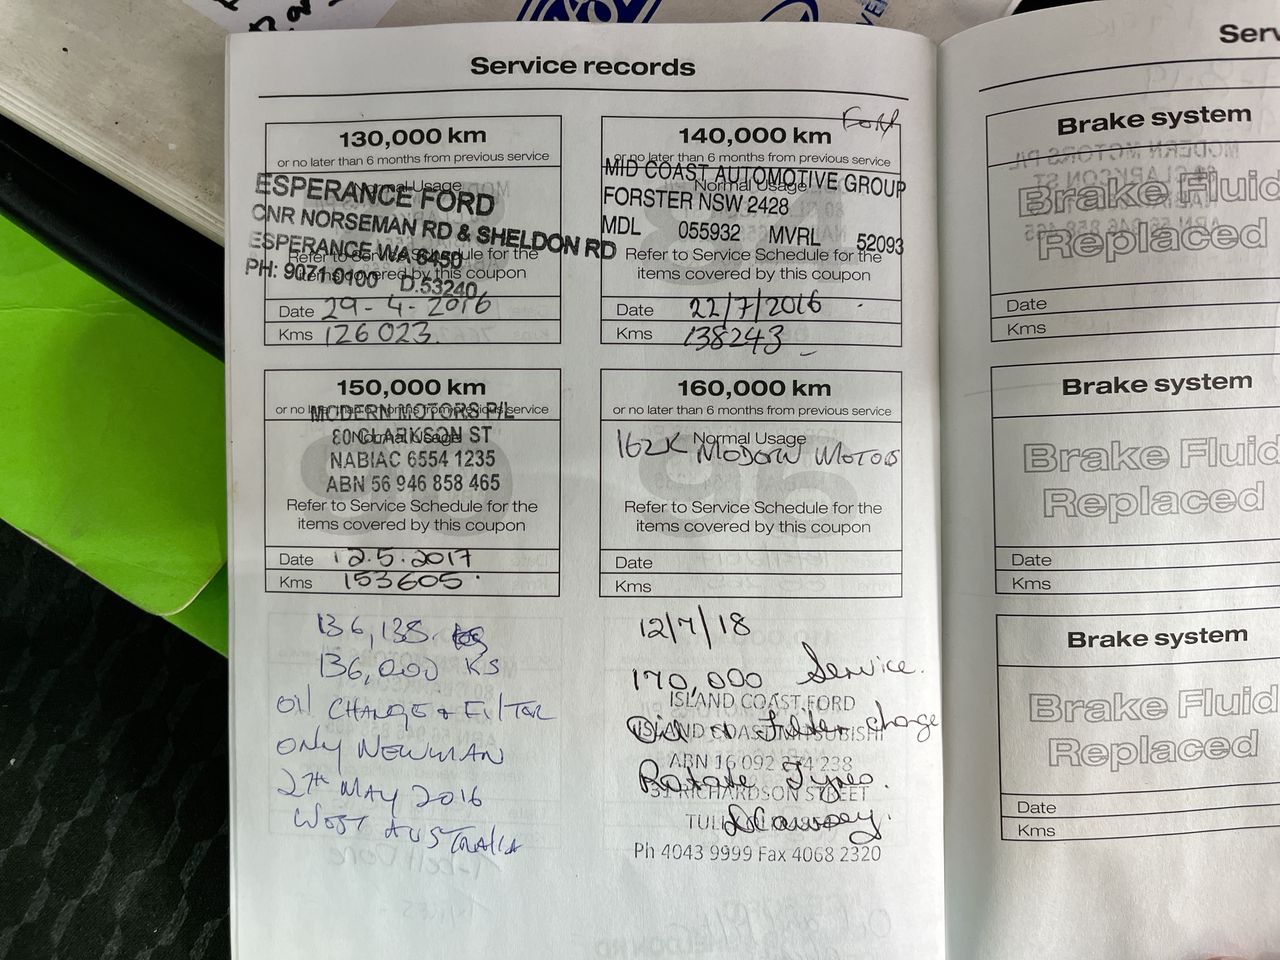 Service records
130,000 km
or no later than 6 months from previous service
Normal Usage
ESPERANCE FORD
CNR NORSEMAN RD & SHELDON RD
ESPERANCE WA 6450
PH: 9071 0100 D.53240
Refer to Service Schedule for the
items covered by this coupon
Date 29-4-2016
Kms 126023
FORD
140,000 km
or no later than 6 months from previous service
Normal Usage
MID COAST AUTOMOTIVE GROUP
FORSTER NSW 2428
MDL 055932 MVRL 52093
Refer to Service Schedule for the
items covered by this coupon
Date 22/7/2016
Kms 138243
150,000 km
or no later than 6 months from previous service
Normal Usage
MODERN MOTORS P/L
80 CLARKSON ST
NABIAC 6554 1235
ABN 56 946 858 465
Refer to Service Schedule for the
items covered by this coupon
Date 12.5.2017
Kms 153605
160,000 km
or no later than 6 months from previous service
Normal Usage
162K MODERN MOTORS
Refer to Service Schedule for the
items covered by this coupon
Date
Kms
136,138
136,000 KS
OIL CHANGE & FILTER
ONLY NEWMAN
27th MAY 2016
WEST AUSTRALIA
12/7/18
170,000 Service.
ISLAND COAST FORD
Oil & Filter change
ISLAND COAST MITSUBISHI
ABN 16 092 274 238
Rotate Tyres.
31 RICHARDSON STREET
Ph 4043 9999 Fax 4068 2320
Serv
Brake system
Brake Fluid
Replaced
Date
Kms
Brake system
Brake Fluid
Replaced
Date
Kms
Brake system
Brake Fluid
Replaced
Date
Kms